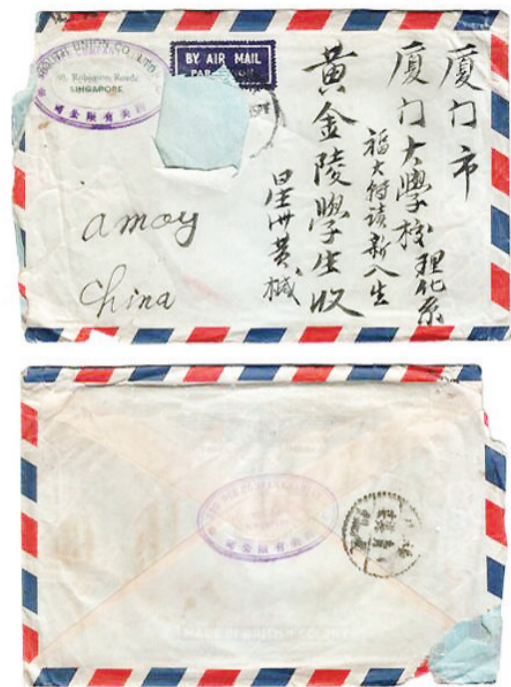 UNION CO.
Robinson Road
SINGAPORE
司公限有
BY AIR MAIL
PAR AVION
厦门市
厦门大學校理化系
福大特读新入生
黄金陵學生收
星洲黄械
amoy
China
司公限有
MADE IN BRITISH COLONY